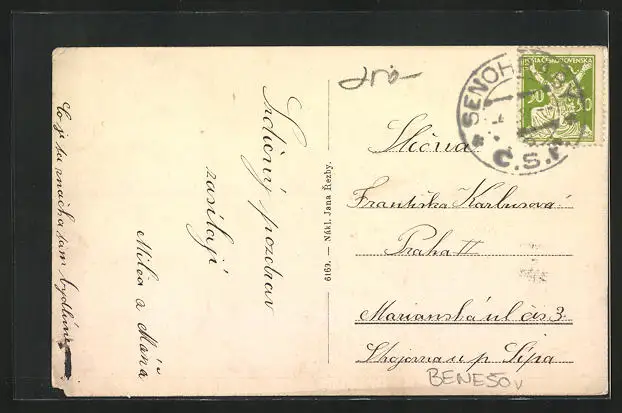 Co je tu značka tam bydlíme
Srdečný pozdrav
zasílají
Milča a Máňa
6169. — Nákl. Jana Řezby.
POŠTA ČESKOSLOVENSKÁ
50 50
SENOHRABY
Č.S.P.
Slečna
Františka Karbusová
Praha II
Marianská ul čís 3.
u p. Šípa
BENEŠOV